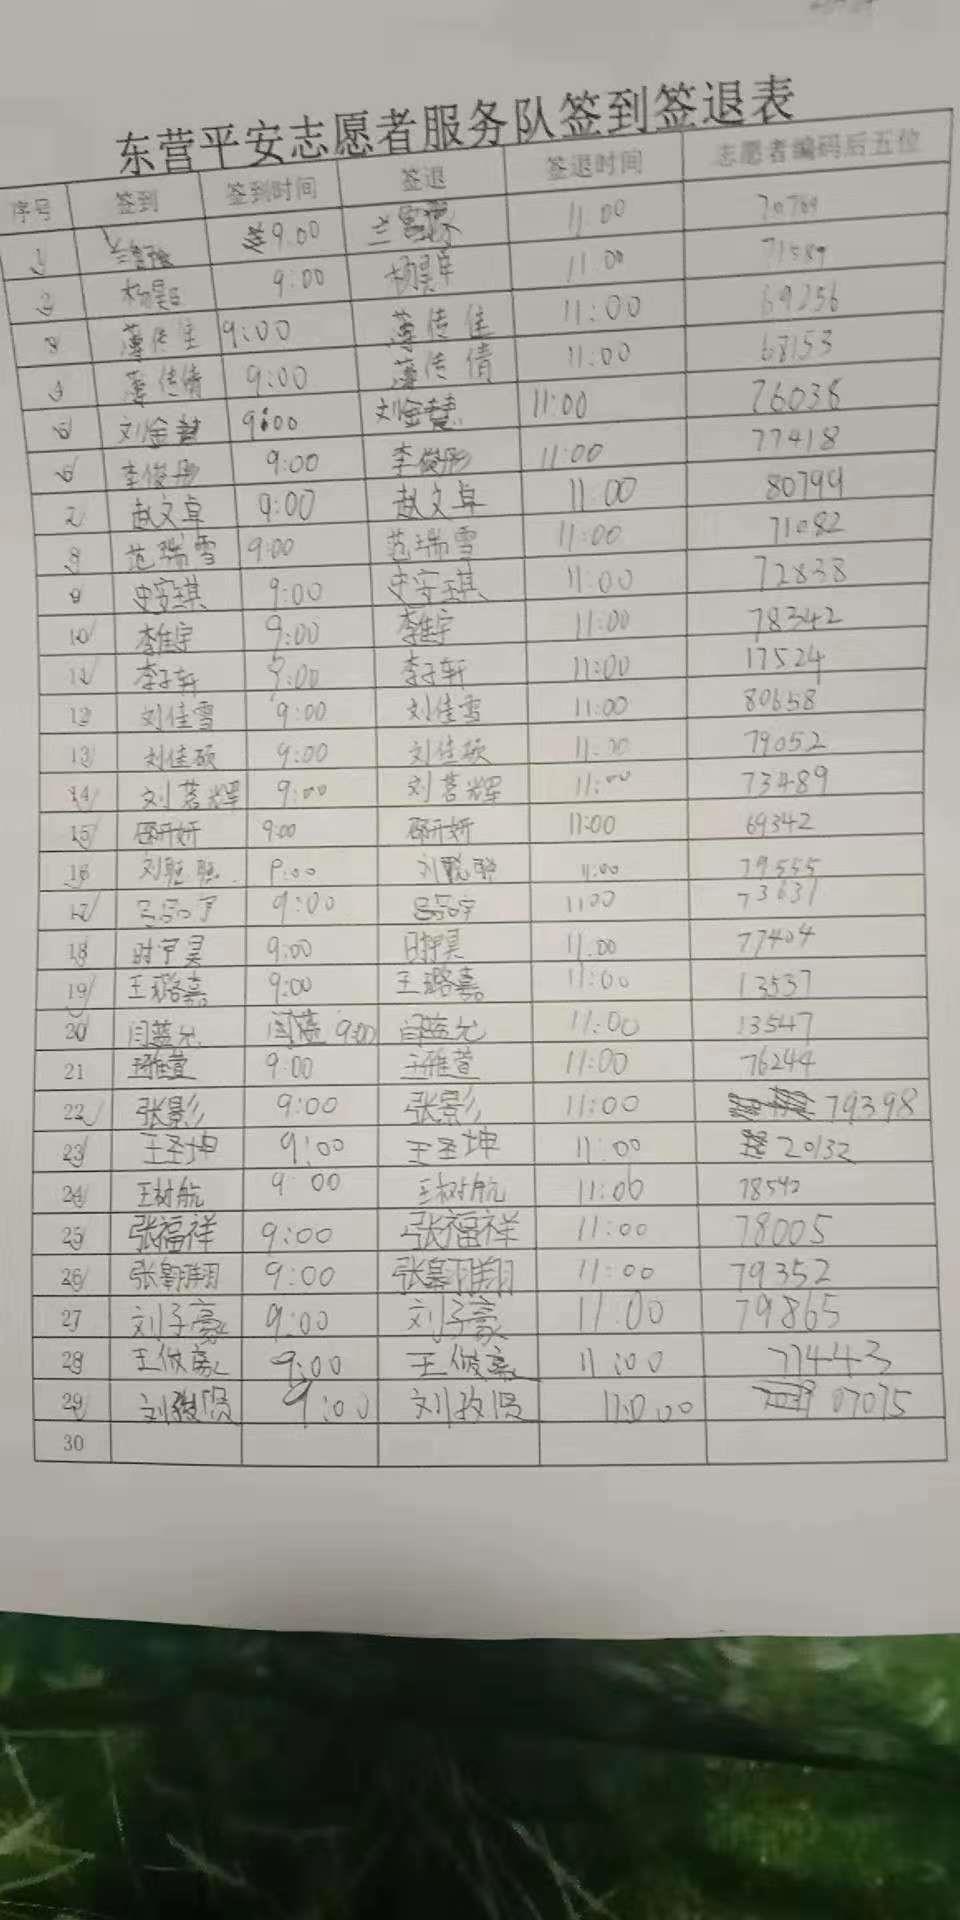 东营平安志愿者服务队签到签退表
序号 签到 签到时间 签退 签退时间 志愿者编码后五位
1 9:00 11:00
2 杨昊 9:00 杨昊 11:00 71589
3 薄传佳 9:00 薄传佳 11:00 69256
4 薄传倩 9:00 薄传倩 11:00 68153
5 刘金慧 9:00 刘金慧 11:00 76038
6 李俊彤 9:00 李俊彤 11:00 77418
7 赵文卓 9:00 赵文卓 11:00 80799
8 范瑞雪 9:00 范瑞雪 11:00 71082
9 史安琪 9:00 史安琪 11:00 72838
10 李佳宇 9:00 李佳宇 11:00 78342
11 李子轩 9:00 李子轩 11:00 17524
12 刘佳雪 9:00 刘佳雪 11:00 80658
13 刘佳硕 9:00 刘佳硕 11:00 79052
14 刘茗辉 9:00 刘茗辉 11:00 73489
15 9:00 11:00 69342
16 刘 9:00 刘 11:00 79555
17 9:00 11:00 73631
18 时宇昊 9:00 时宇昊 11:00 77404
19 王璐嘉 9:00 王璐嘉 11:00 13537
20 闫蓝允 9:00 闫蓝允 11:00 13547
21 王雅萱 9:00 王雅萱 11:00 76244
22 张影 9:00 张影 11:00 79398
23 王圣坤 9:00 王圣坤 11:00 20132
24 王树航 9:00 王树航 11:00 78542
25 张福祥 9:00 张福祥 11:00 78005
26 张翔 9:00 张翔 11:00 79352
27 刘子豪 9:00 刘子豪 11:00 79865
28 王俊豪 9:00 王俊豪 11:00 77443
29 刘 贤 9:00 刘 贤 11:00 07075
30